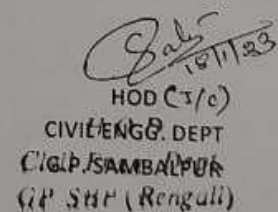 18/1/23
HOD (I/c)
CIVIL ENGG. DEPT
SAMBALPUR
(Rengali)